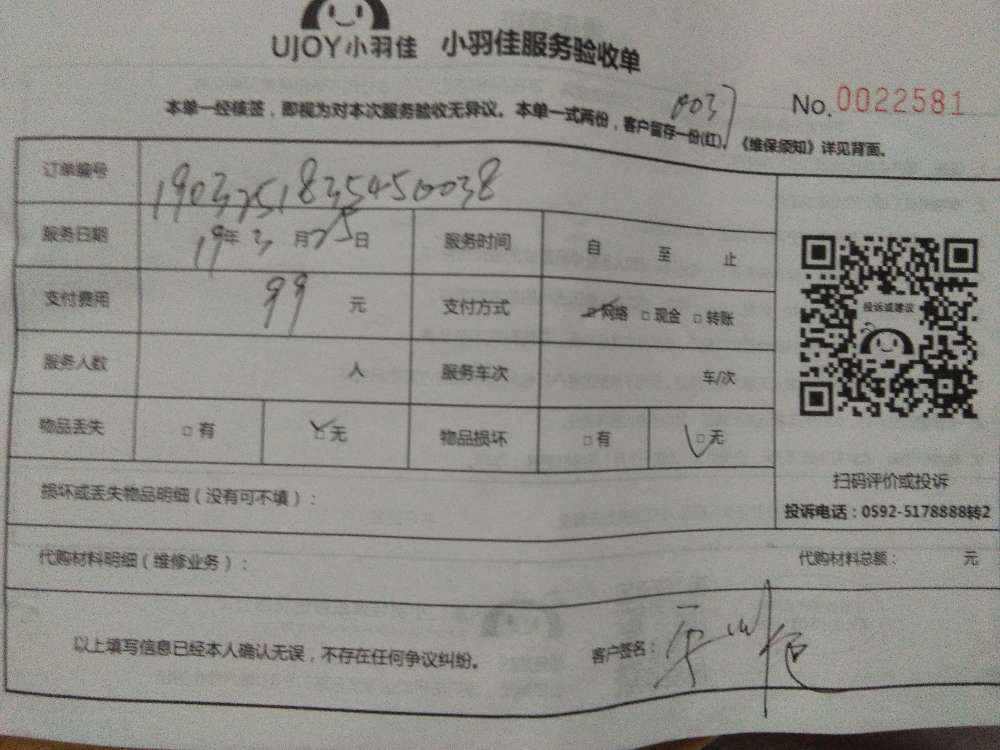 UJOY小羽佳 小羽佳服务验收单
No.0022581
003
本单一经核签，即视为对本次服务验收无异议。本单一式两份，客户留存一份(红)。《维保须知》详见背面。
订单编号 19032518354500038
服务日期 19年3月25日 服务时间 自 至 止
支付费用 99 元 支付方式 ☑网络 □现金 □转账
服务人数 人 服务车次 车/次
物品丢失 □有 ☑无 物品损坏 □有 ☑无
投诉或建议
扫码评价或投诉
投诉电话：0592-5178888转2
损坏或丢失物品明细（没有可不填）：
代购材料明细（维修业务）： 代购材料总额： 元
以上填写信息已经本人确认无误，不存在任何争议纠纷。 客户签名：